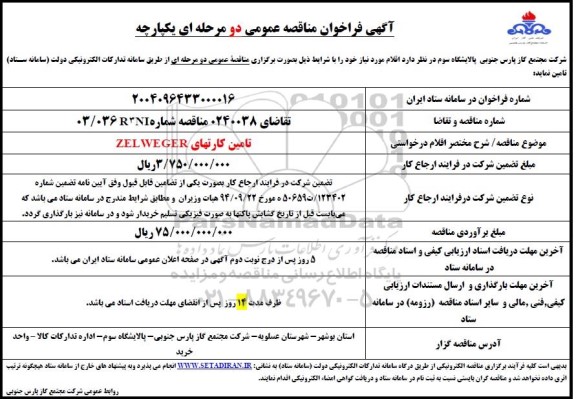 آگهی فراخوان مناقصه عمومی دو مرحله ای یکپارچه
شرکت مجتمع گاز پارس جنوبی پالایشگاه سوم در نظر دارد اقلام مورد نیاز خود را با شرایط ذیل بصورت برگزاری مناقصة عمومی دو مرحله ای از طریق سامانه تدارکات الکترونیکی دولت (سامانه ستاد)
تامین نماید:
شماره فراخوان در سامانه ستاد ایران
۲۰۰۴۰۹۶۴۳۳۰۰۰۰۱۶
شماره مناقصه و تقاضا
تقاضای ۰۲۴۰۰۳۸ مناقصه شماره R۳NI ۰۳/۰۳۶
موضوع مناقصه / شرح مختصر اقلام درخواستی
تامین کارتهای ZELWEGER
مبلغ تضمین شرکت در فرایند ارجاع کار
۳/۷۵۰/۰۰۰/۰۰۰ریال
نوع تضمین شرکت درفرایند ارجاع کار
تضمین شرکت در فرایند ارجاع کار بصورت یکی از تضامین قابل قبول وفق آیین نامه تضمین شماره
۱۲۳۴۰۲/ت۵۰۶۵۹ ه مورخ ۹۴/۰۹/۲۲ هیات وزیران و مطابق شرایط مندرج در سامانه ستاد می باشد که
می‌بایست قبل از تاریخ گشایش پاکتها به صورت فیزیکی تسلیم خریدار شود و در سامانه نیز بارگذاری گردد.
مبلغ برآوردی مناقصه
۷۵/۰۰۰/۰۰۰/۰۰۰ ریال
آخرین مهلت دریافت اسناد ارزیابی کیفی و اسناد مناقصه
در سامانه ستاد
۵ روز پس از درج نوبت دوم آگهی در صفحه اعلان عمومی سامانه ستاد ایران می باشد.
آخرین مهلت بارگذاری و ارسال مستندات ارزیابی
کیفی،فنی ،مالی و سایر اسناد مناقصه (رزومه) در سامانه
ستاد
ظرف مدت ۱۴ روز پس از انقضای مهلت دریافت اسناد می باشد.
آدرس مناقصه گزار
استان بوشهر– شهرستان عسلویه– شرکت مجتمع گاز پارس جنوبی– پالایشگاه سوم– اداره تدارکات کالا – واحد
خرید
بدیهی است کلیه فرآیند برگزاری مناقصه الکترونیکی از طریق درگاه سامانه تدارکات الکترونیکی دولت (سامانه ستاد) به نشانی: WWW.SETADIRAN.IR انجام می پذیرد وبه پیشنهاد های خارج از سامانه ستاد هیچگونه ترتیب
اثری داده نخواهد شد و مناقصه گران بایستی نسبت به ثبت نام در سامانه ستاد و دریافت گواهی امضاء الکترونیکی اقدام نمایند.
روابط عمومی شرکت مجتمع گاز پارس جنوبی